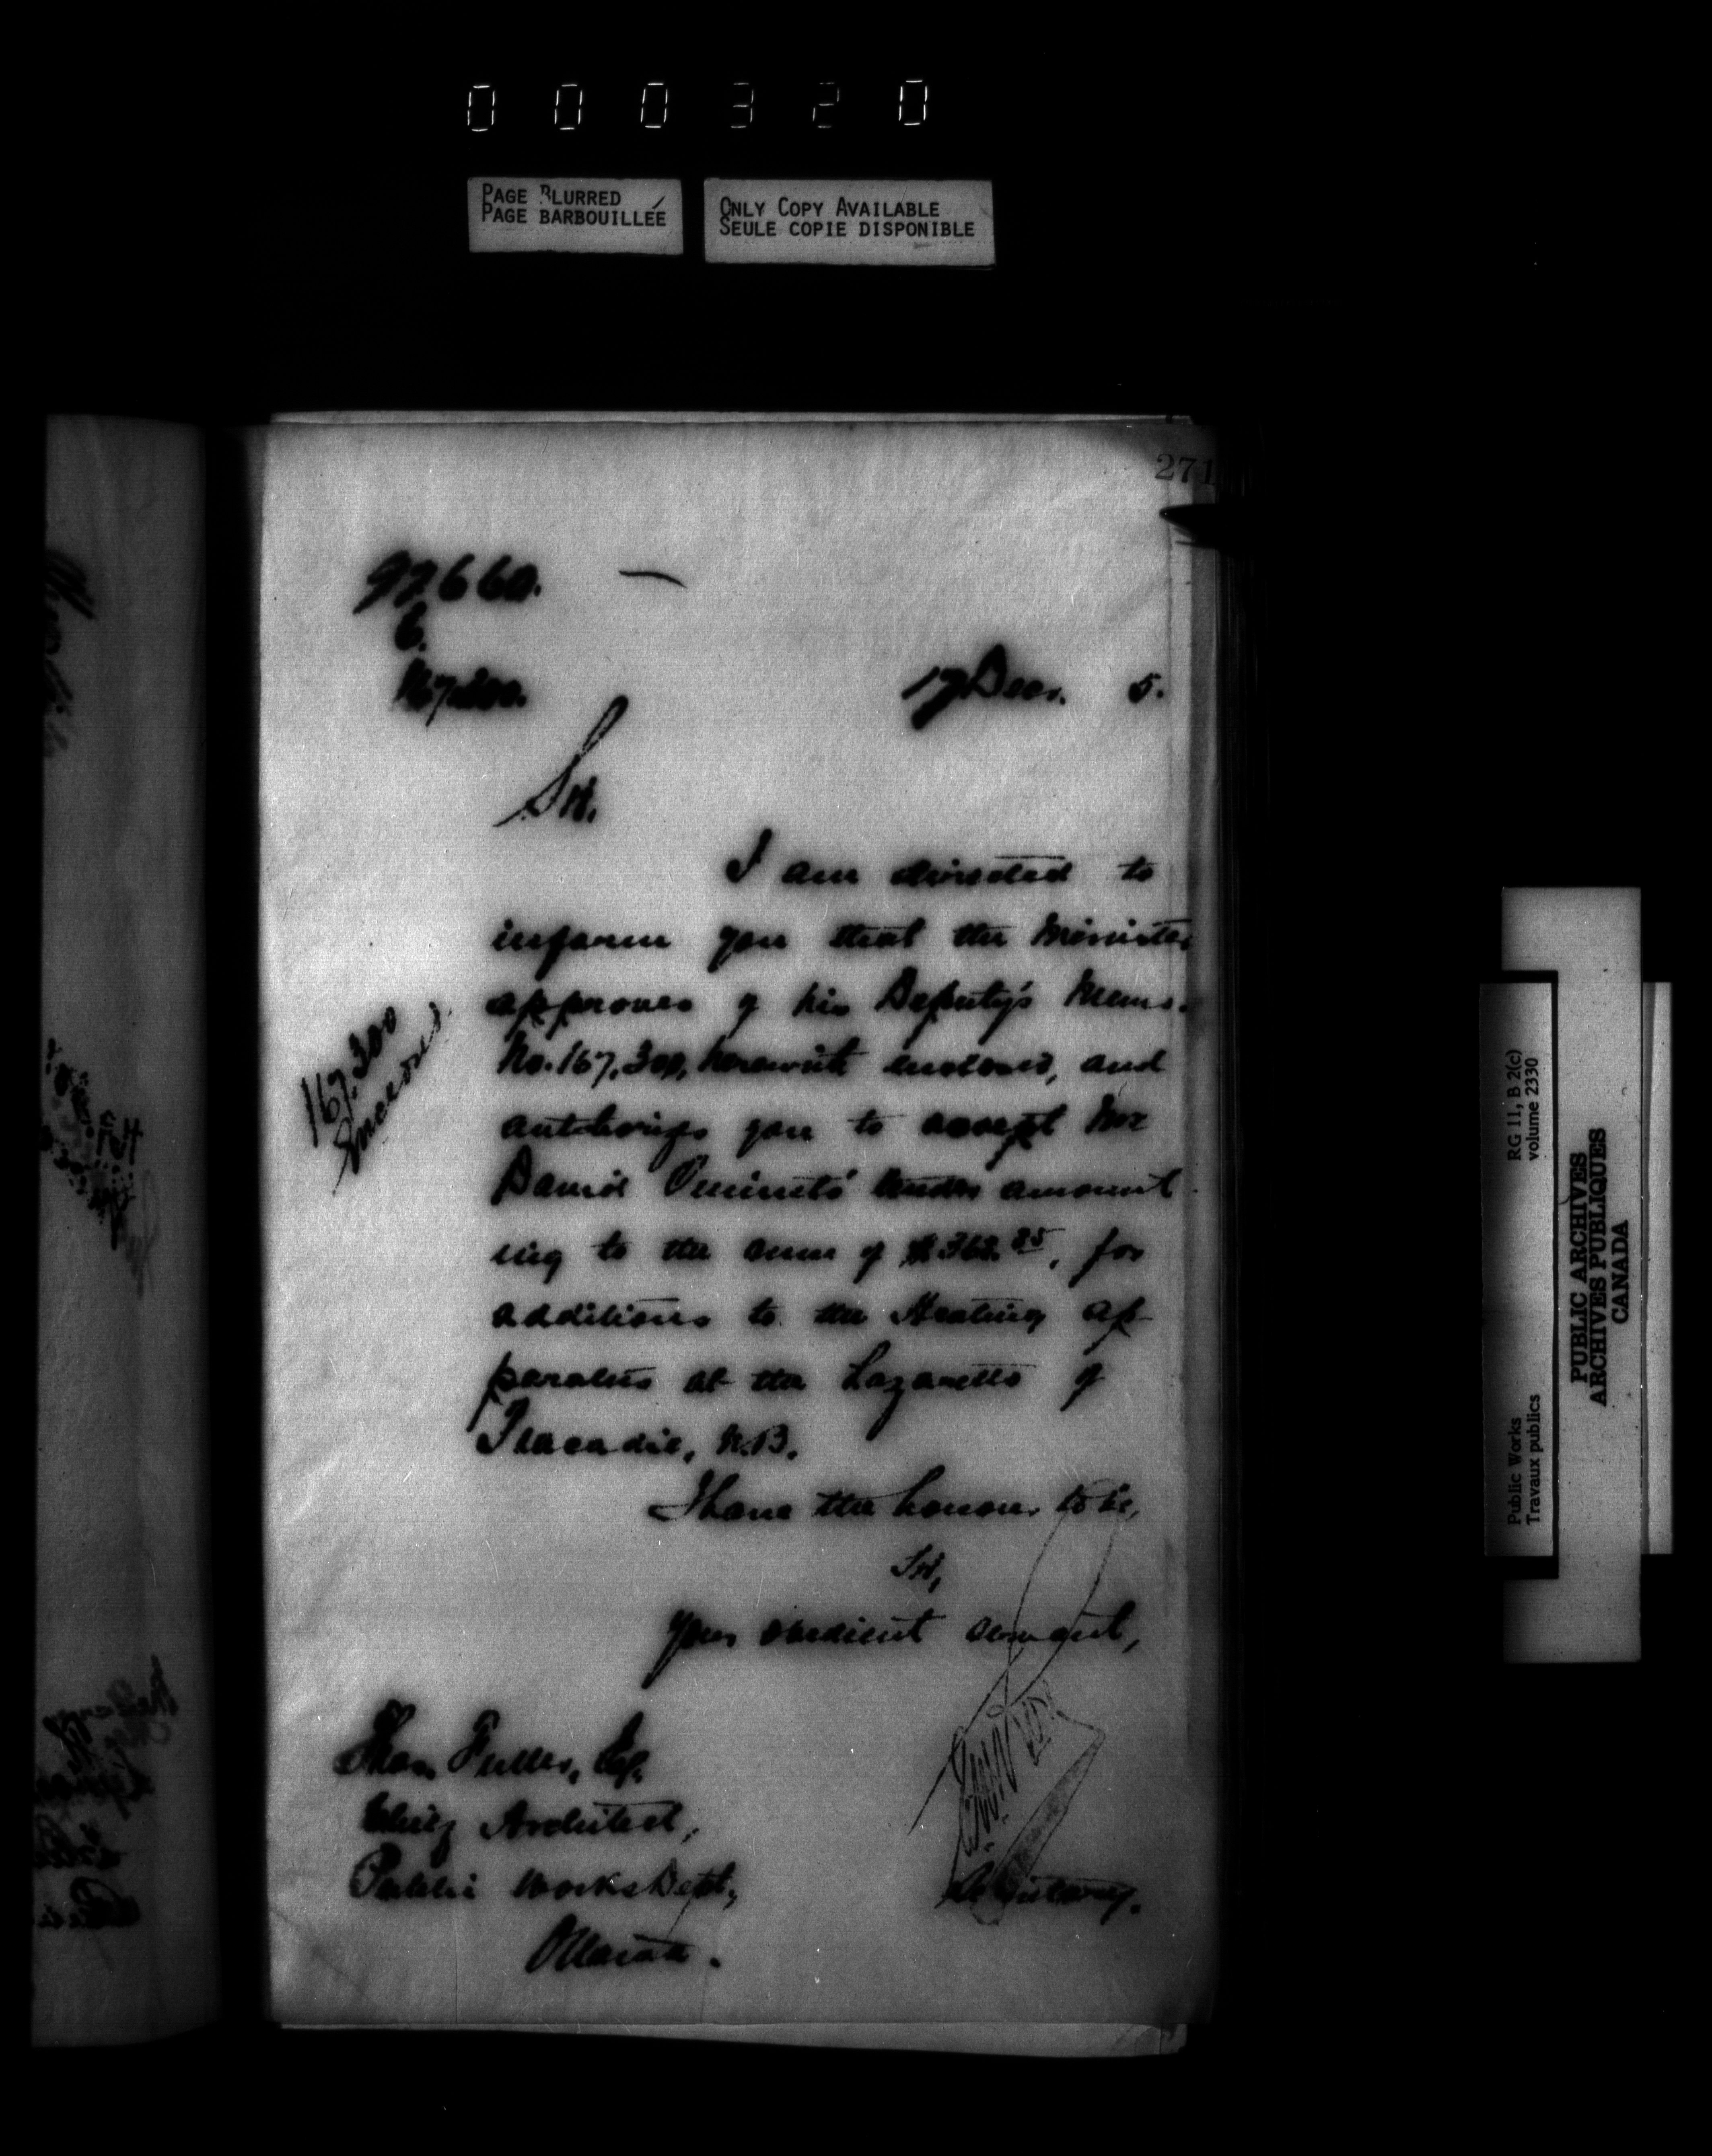 000320
PAGE BLURRED
PAGE BARBOUILLÉE
ONLY COPY AVAILABLE
SEULE COPIE DISPONIBLE
271
97660.
6.
167,300.
17 Decr. 5.
Sir.
I am directed to
inform you that the Minister
approves of his Deputy's Memo.
No. 167,300, herewith enclosed, and
authorizes you to accept Mr
David Ouimet's tender amount
ing to the sum of $362.25, for
additions to the Heating ap-
paratus at the Lazaretto of
Tracadie, N.B.
167,300
I have the honour to be,
Sir,
Your obedient servant,
Thos. Fuller, Esq.
Chief Architect,
Public Works Dept,
Ottawa.
Secretary.
Public Works
Travaux publics
RG 11, B 2(c)
volume 2330
PUBLIC ARCHIVES
ARCHIVES PUBLIQUES
CANADA